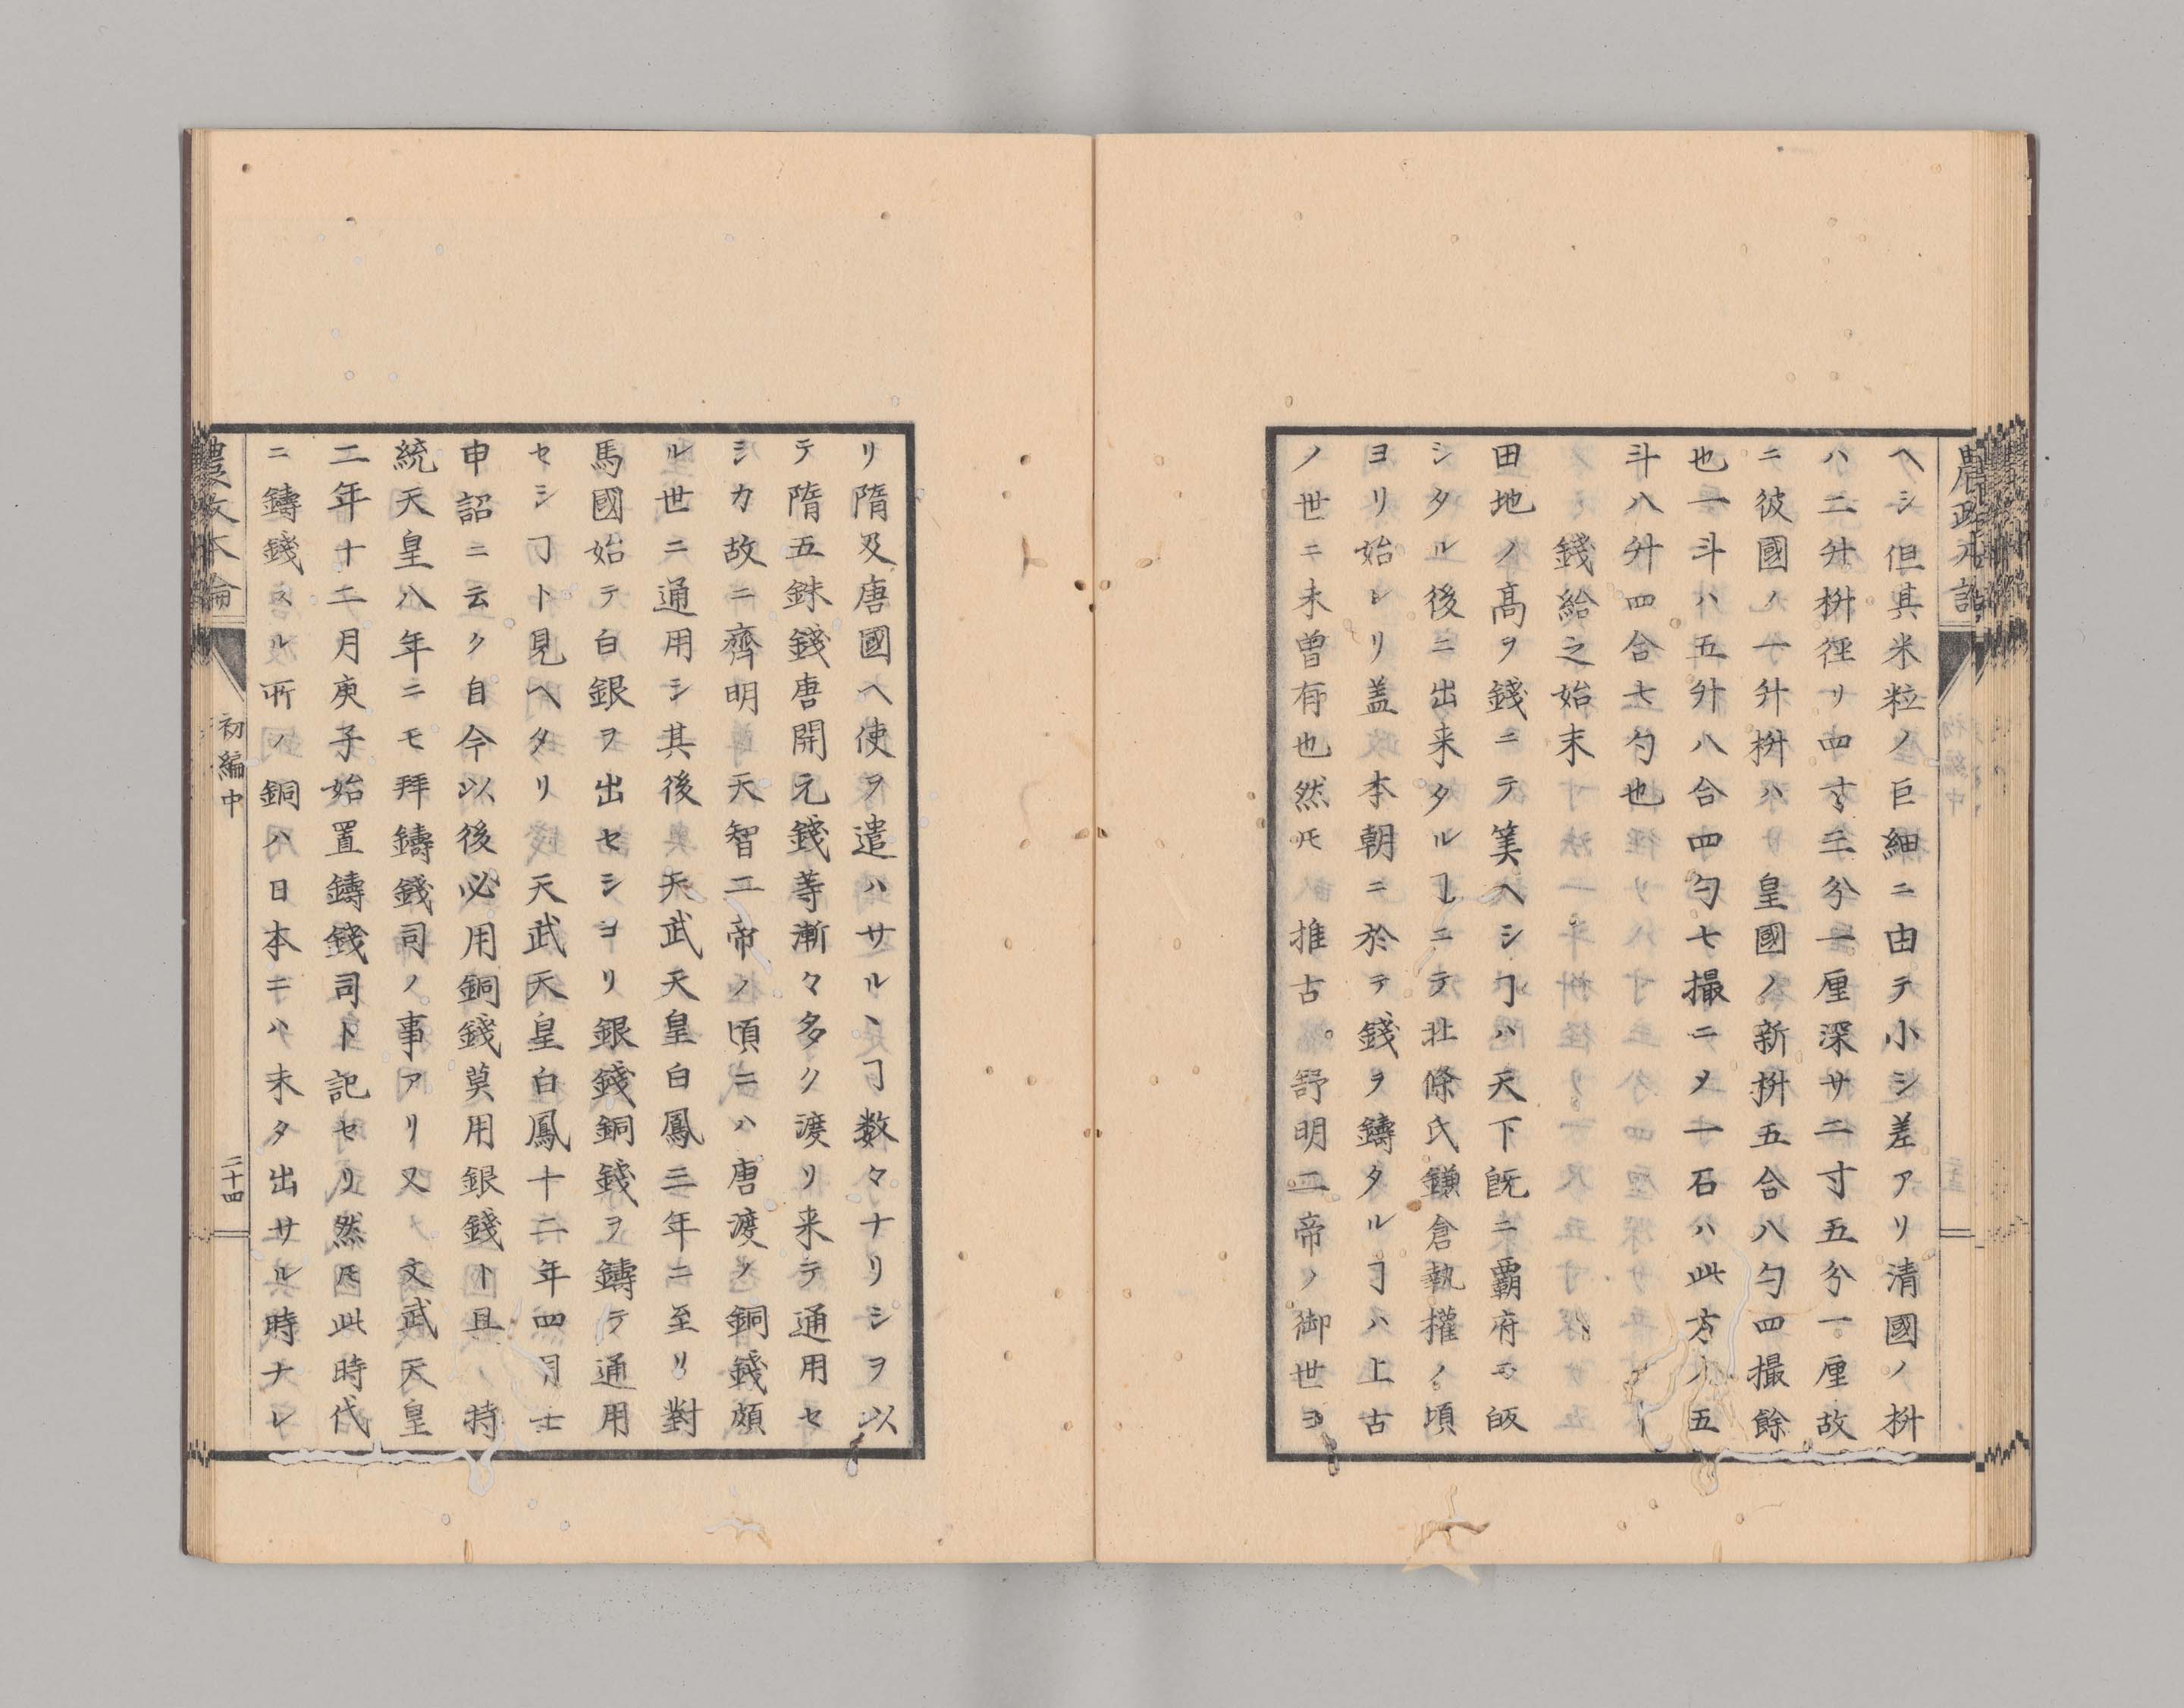 ヘシ但其米粒ノ巨細ニ由テ小シ差アリ清國ノ枡
ハ二升枡徑リ四寸三分一厘深サ二寸五分一厘故
ニ彼國ノ一升枡ハ皇國ノ新枡五合八勺四撮餘
也一斗ハ五升八合四勺七撮ニメ一石ハ此方ノ五
斗八升四合七勺也
錢給之始末
田地ノ高ヲ錢ニテ筭ヘシヿハ天下既ニ覇府ニ皈
シタル後ニ出来タルヿニテ北條氏鎌倉執權ノ頃
ヨリ始レリ蓋本朝ニ於テ錢ヲ鑄タルヿハ上古
ノ世ニ未曽有也然𪜈推古。舒明二帝ノ御世ヨ
リ隋及唐國ヘ使ヲ遣ハサルヽヿ数々ナリシヲ以
テ隋五銖錢唐開元錢等漸々多ク渡リ来テ通用セ
シカ故ニ齊明天智二帝ノ頃ニハ唐渡ノ銅錢頗
ル世ニ通用シ其後天武天皇白鳳三年ニ至リ對
馬國始テ白銀ヲ出セシヨリ銀錢銅錢ヲ鑄テ通用
セシヿト見ヘタリ天武天皇白鳳十二年四月壬
申詔ニ云ク自今以後必用銅錢莫用銀錢ト且ノ持
統天皇八年ニモ拜鑄錢司ノ事アリ又文武天皇
二年十二月庚子始置鑄錢司ト記セリ然𪜈此時代
ニ鑄錢スル所ノ銅ハ日本ニハ未タ出サル時ナレ
農政本論
初編中
二十四